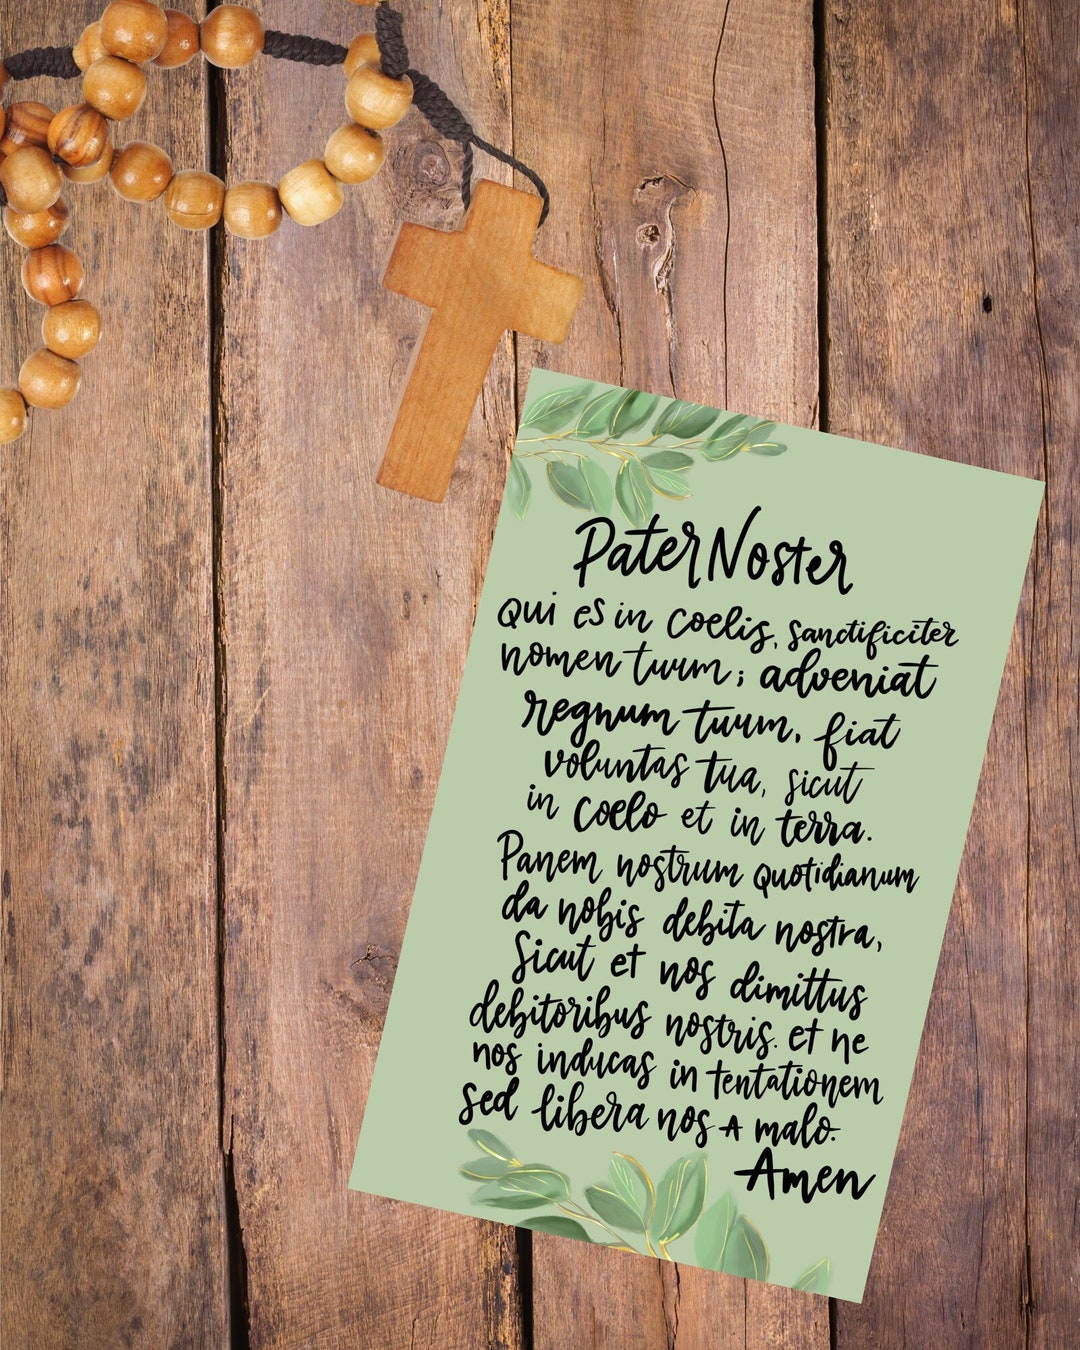 Pater Noster
Qui es in coelis, sanctificiter
nomen tuum; adveniat
regnum tuum, fiat
voluntas tua, sicut
in coelo et in terra.
Panem nostrum quotidianum
da nobis debita nostra,
Sicut et nos dimittus
debitoribus nostris. et ne
nos inducas in tentationem
sed libera nos A malo.
Amen